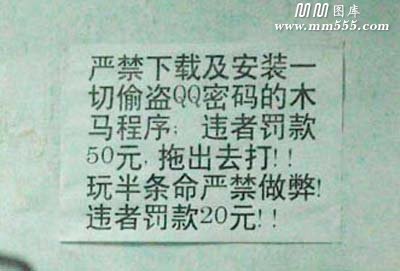 MM 图库
www.mm555.com
严禁下载及安装一
切偷盗QQ密码的木
马程序；违者罚款
50元，拖出去打！！
玩半条命严禁做弊！
违者罚款20元！！